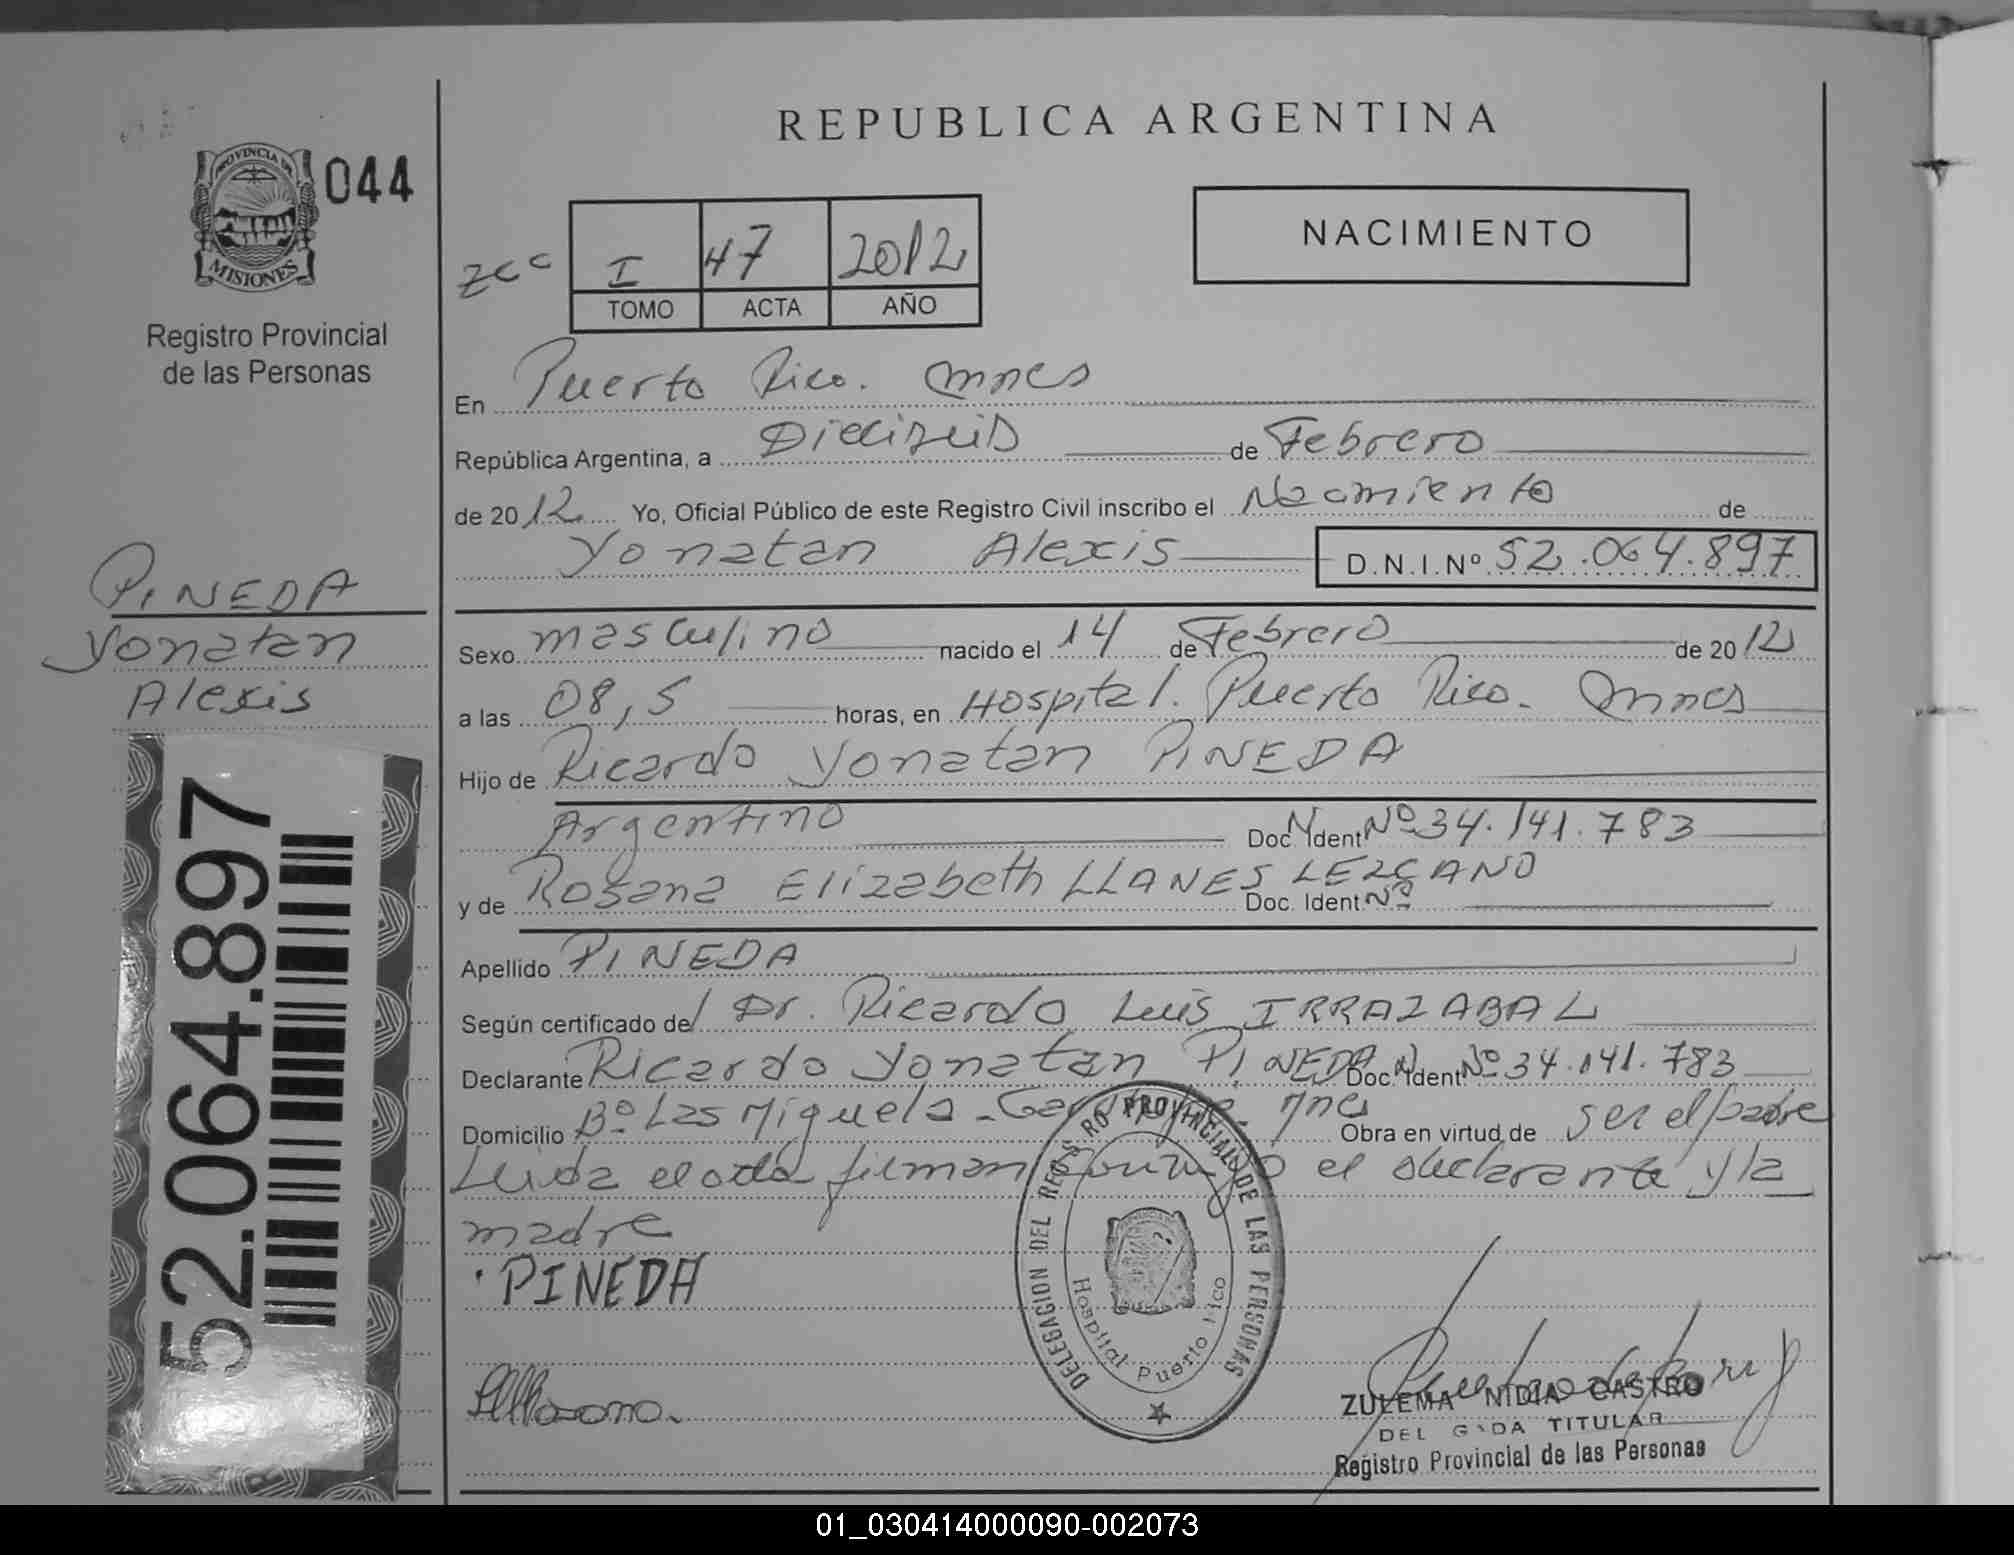 REPUBLICA ARGENTINA
PROVINCIA DE
MISIONES
044
Registro Provincial
de las Personas
I 47 2012
TOMO ACTA AÑO
NACIMIENTO
En Puerto Rico. Mnes
República Argentina, a Dieciseis de Febrero
de 2012 Yo, Oficial Público de este Registro Civil inscribo el Nacimiento de
Yonatan Alexis D.N.I.Nº 52.064.897
PINEDA
Yonatan
Alexis
Sexo masculino nacido el 14 de Febrero de 2012
a las 08,5 horas, en Hospital. Puerto Rico. Mnes
Hijo de Ricardo Yonatan PINEDA
Argentino Doc. N. Ident Nº 34.141.783
y de Rosana Elizabeth LLANES LEZCANO
Doc. Ident. Nº
Apellido PINEDA
Según certificado del Dr. Ricardo Luis IRRAZABAL
Declarante Ricardo Yonatan PINEDA Doc. N. Ident Nº 34.141.783
Domicilio Bº Las Miguela - Mnes Obra en virtud de ser el padre
Leida el acta firman el declarante y la
madre
PINEDA
52.064.897
DELEGACION DEL REGISTRO PROVINCIAL DE LAS PERSONAS
Hospital Puerto Rico
ZULEMA NIDIA CASTRO
DELEGADA TITULAR
Registro Provincial de las Personas
01_030414000090-002073